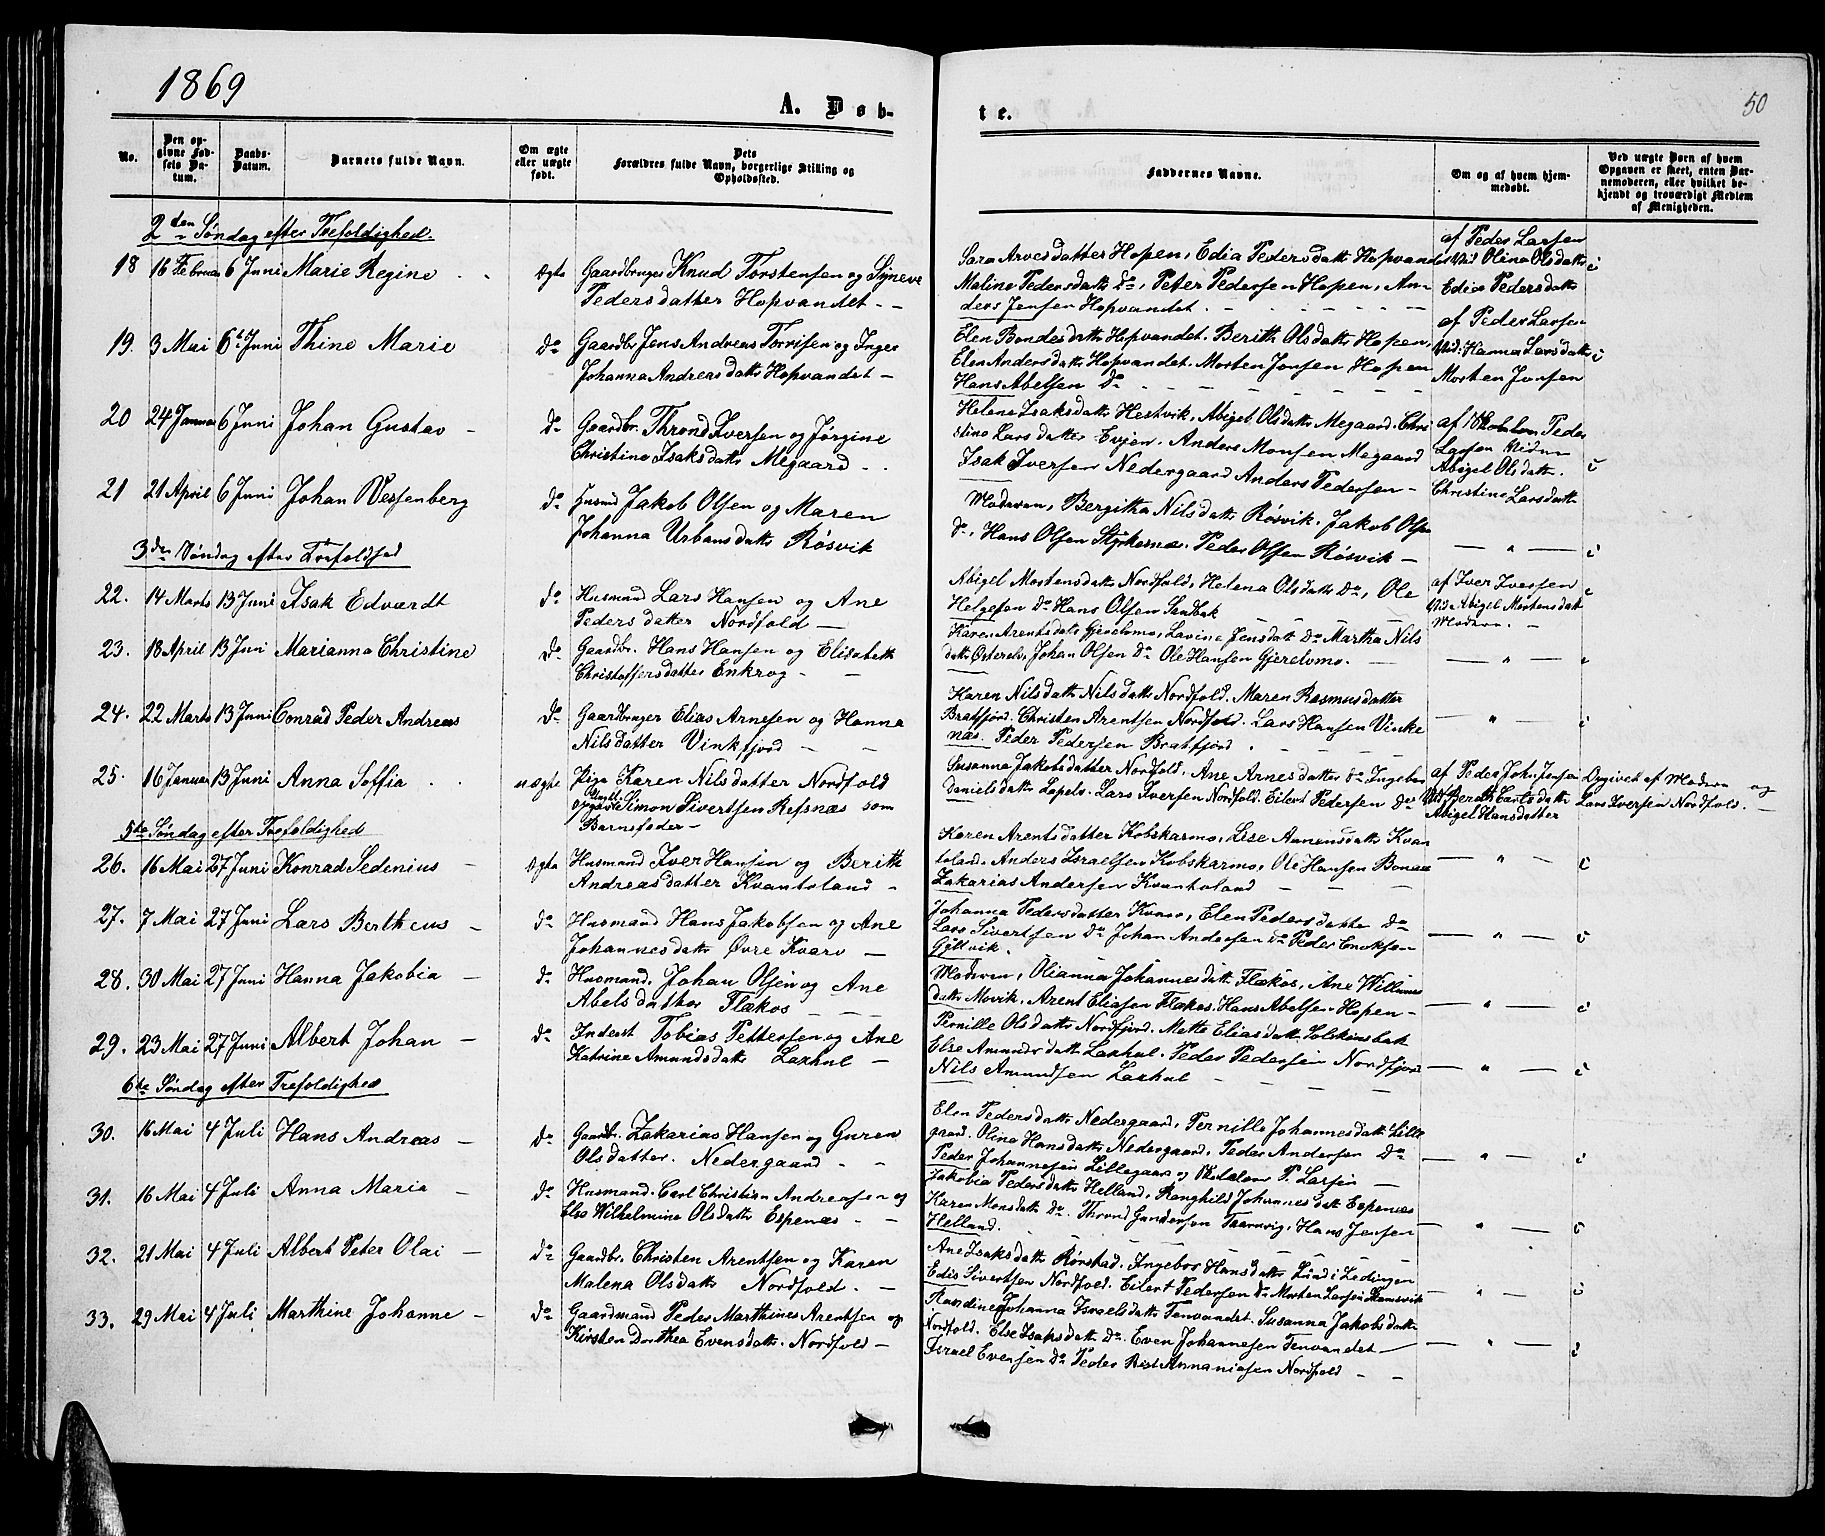 1869
50
A. Døb-
te.
No.
Den opgivne Fødsels Datum.
Daabs-Datum.
Barnets fulde Navn.
Om ægte eller uægte født.
Dets Forældres fulde Navn, borgerlige Stilling og Opholdssted.
Faddernes Navne.
Om og af hvem hjemmedøbt.
Ved uægte Børn af hvem Opgaven er skeet, enten Barnemoderen, eller hvilket bekjendt og troværdigt Medlem af Menigheden.
2den Søndag efter Trefoldighed.
18 16 Februar 6 Juni Marie Regine ægte Gaardbruger Knud Torstensen og Syneve
Pedersdatter Hopvandet
Sara Arvesdatter Hopen, Edia Pedersdatter Hopvandet
Maline Pedersdatt do, Peter Pedersen Hopen, An-
ders Jensen Hopvandet
af Peder Larsen
Vid Olina Olsdatt
Edia Pedersdatt
19. 3 Mai 6te Juni Thine Marie do Gaardbr. Jens Andreas Torrisen og Inger
Johanna Andreasdatt Hopvandet
Elen Bendesdatt Hopvandet. Berith Olsdatt Hopen,
Elen Andersdatt Hopvandet. Morten Jonsen Hopen
Hans Abelsen do
af Peder Larsen
Vid. Hanna Larsdatt
Morten Jonsen
20 24 Januar 6 Juni Johan Gustav do Gaardbr. Thrond Iversen og Jørgine
Christine Isaksdatt Megaard
Helene Isaksdatt Hestvik, Abigel Olsdatt Megaard. Chri
stine Larsdatter Evjen. Anders Monsen Megaard
Isak Iversen Nedergaard Anders Pedersen
af Skoleler Peder
Larsen Vidne
Abigel Olsdatt.
Christine Larsdatt
21 21 April 6 Juni Johan Wessenberg do Husmd Jakob Olsen og Maren
Johanna Urbansdatt Røsvik
Moderen, Bergitha Nilsdatt Røsvik. Jakob Olsen
do, Hans Olsen Styrkesnæs. Peder Olsen Røsvik
3die Søndag efter Trefoldhed
22. 14 Marts 13 Juni Isak Edvardt do Husmand Lars Hansen og Ane
Pedersdatter Nordfold
Abigel Mortensdatt Nordfold, Helena Olsdatt do, Ole
Helgesen do Hans Olsen Sandbak
af Iver Iversen
Vid. Abigel Mortensdatt
Moderen
23. 18 April 13 Juni Marianna Christine do Gaardbr. Hans Hansen og Elisabeth
Christoffersdatter Enkrog
Karen Arentsdatt Gjerelvmo, Lavina Jensdatt do Martha Nils
datt Østerelv. Johan Olsen do Ole Hansen Gjerelvmo.
24. 22 Marts 13 Juni Conrad Peder Andreas do Gaardbruger Elias Arnesen og Hanna
Nilsdatter Vinkfjord
Karen Nilsdatt Nilsdatt Nordfold. Maren Rasmusdatter
Bratfjord. Christen Arentsen Nordfold. Lars Hansen Vinke
næs. Peder Pedersen Bratfjord
25. 16 Januar 13 Juni Anna Soffia uægte Pige Karen Nilsdatter Nordfold
opgav Simon Sivertsen Refsnæs som
Barnefader
Susanna Jakobsdatter Nordfold, Ane Arnesdatter do Ingebor
Danielsdatt Løpels. Lars Iversen Nordfold. Eilert Pedersen do
af Peder John Jensen
Vid Gjerdt Carlsdatt
Abigel Hansdatter
Opgivet af Moderen og
Lars Iversen Nordfold.
5te Søndag efter Trefoldighed
26. 16 Mai 27 Juni Konrad Sedenius ægte Husmand Iver Hansen og Berith
Andreasdatter Kvantoland
Karen Arentsdatter Kobskarmo, Lise Annensdatt Kvan
toland. Anders Israelsen Kobskarmo, Ole Hansen Bonaas
Zakarias Andersen Kvantoland
27. 7 Mai 27 Juni Lars Bertheus do Husmand Hans Jakobsen og Ane
Johannesdatt Øvre Kvarv
Johanna Pedersdatter Kvarv, Elen Pedersdatter do
Lars Sivertsen do Johan Andersen do Peder Enoksen
Gyltvik.
28. 30 Mai 27 Juni Hanna Jakobia do Husmand. Johan Olsen og Ane
Abelsdatter Flækos
Moderen, Olianna Johannesdatt Flækos, Ane Willums
datt Movik, Arent Eliasen Flækos. Hans Abelsen Hopen
29. 23 Mai 27 Juni Albert Johan do Inderst Tobias Pettersen og Ane
Katrine Amundsdatt Laxhul
Pernille Olsdatt Nordfjord. Mette Eliasdatt Solskinsbak
Else Amundsdatt Laxhul. Peder Pedersen Nordfjord
Nils Amundsen Laxhul
6te Søndag efter Trefoldighed
30. 16 Mai 4 Juli Hans Andreas do Gaardbr. Zakarias Hansen og Guren
Olsdatter. Nedergaard
Elen Pedersdatt Nedergaard, Pernille Johannesdatt Lille
graad. Olina Hansdatt Nedergaard, Peder Andersen do
Peder Johannesen Lillegaard og P. Larsen
31. 16 Mai 4 Juli Anna Maria do Husmand. Carl Christian Andreasen og
Else Wilhelmine Olsdatt Espenæs
Jakobia Pedersdatt Helland, Ranghild Johannesdatt Espenæs
Karen Monsdatt do. Thrond Gundersen Taarnvig, Hans Jensen
Helland.
32. 21 Mai 4 Juli Albert Peter Olai do Gaardbr. Christen Arentsen og Karen
Malena Olsdatt Nordfold.
Ane Isaksdatt Rørstad. Ingebor Hansdatt Lund i Ledingen
Edis Sivertsen Nordfold. Eilert Pedersen do Morten Larsen
33. 29 Mai 4 Juli Marthine Johanne do Gaardmand Peder Marthines Arentsen og
Kirsten Dorthea Evensdatt. Nordfold
Johanna Israelsdatt Tenvandet. Susanna Jakobsdatt
Nordfold. Else Isaksdatt do. Even Johannesen Tenvandet
Israel Evensen do Peder Annaniasen Nordfold